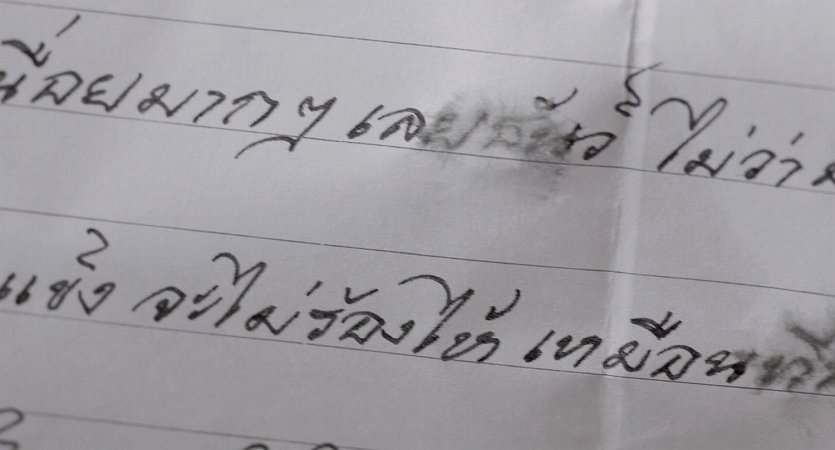 นื่อยมากๆ เลย ไม่ว่า
แข้ง จะไม่ร้องไห้ เหมือน